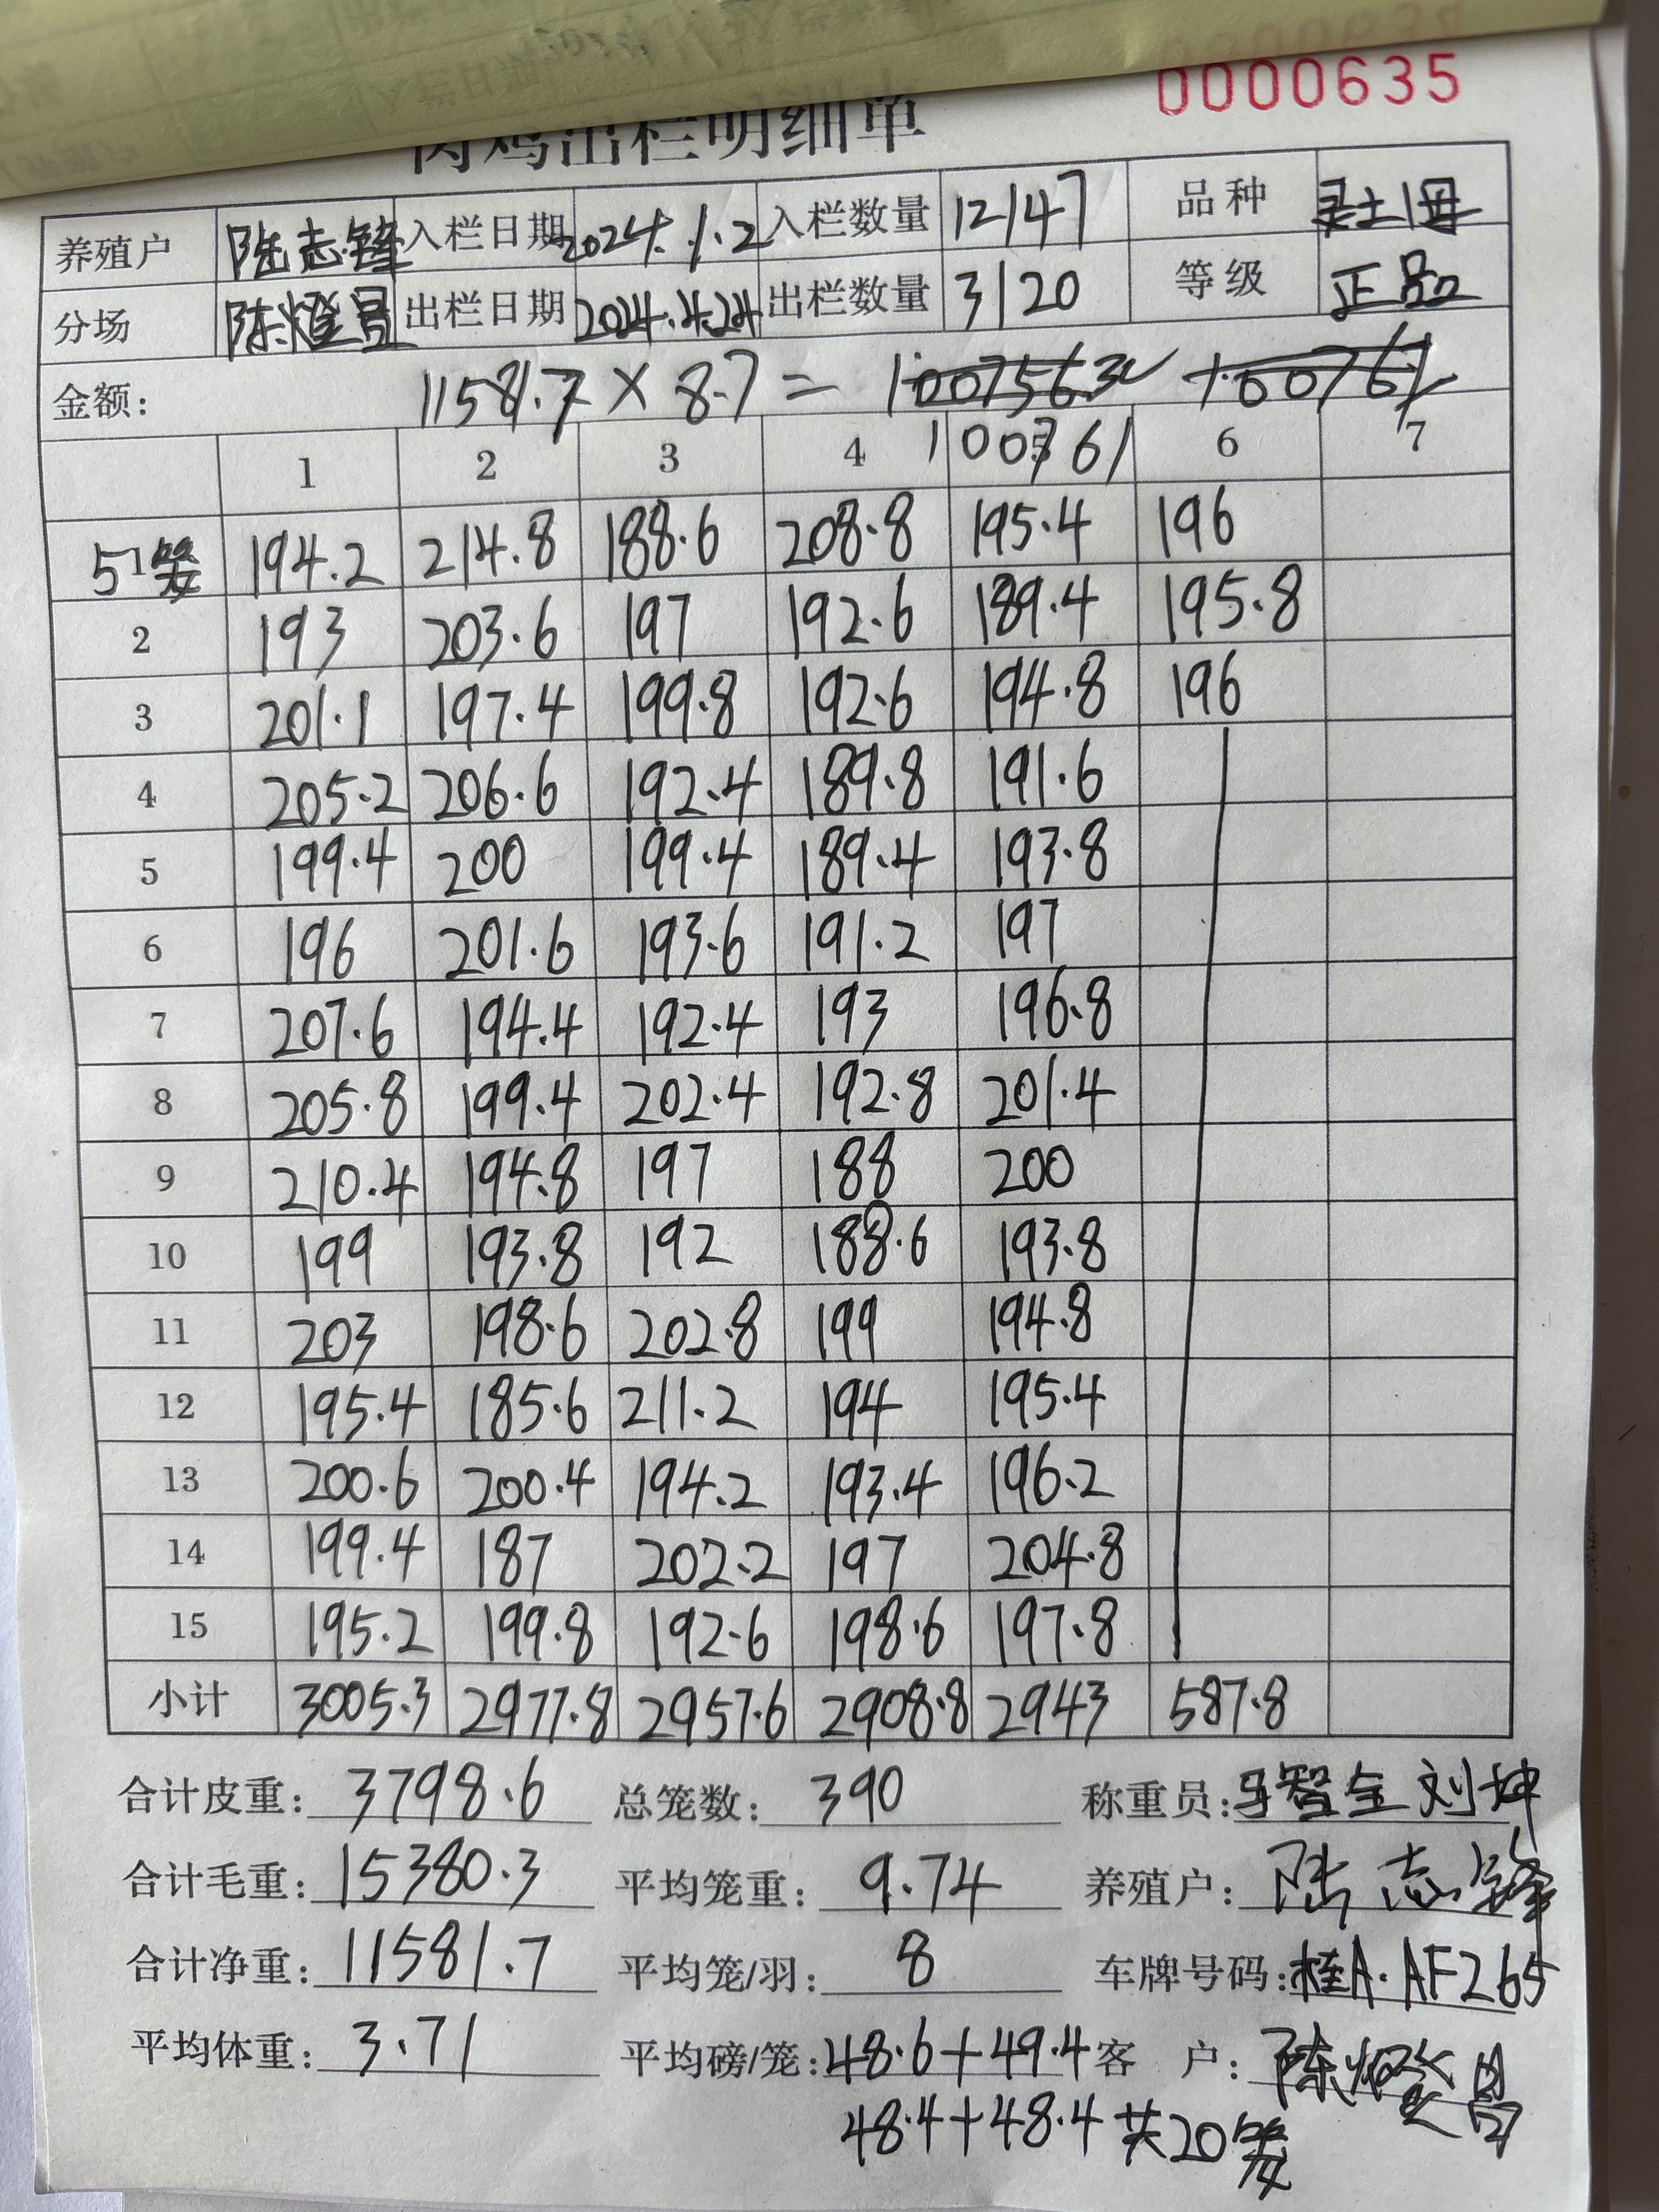 0000635
肉鸡出栏明细单
养殖户 陆志锋 入栏日期 2024.1.2 入栏数量 12147 品种 灵土1母
分场 陈燈昌 出栏日期 2024.4.24 出栏数量 3120 等级 正品
金额: 11581.7 × 8.7 = 100761
1 2 3 4 5 6 7
5笼 194.2 214.8 188.6 208.8 195.4 196
2 193 203.6 197 192.6 189.4 195.8
3 201.1 197.4 199.8 192.6 194.8 196
4 205.2 206.6 192.4 189.8 191.6
5 199.4 200 199.4 189.4 193.8
6 196 201.6 193.6 191.2 197
7 207.6 194.4 192.4 193 196.8
8 205.8 199.4 202.4 192.8 201.4
9 210.4 194.8 197 188 200
10 199 193.8 192 188.6 193.8
11 203 198.6 202.8 199 194.8
12 195.4 185.6 211.2 194 195.4
13 200.6 200.4 194.2 193.4 196.2
14 199.4 187 202.2 197 204.8
15 195.2 199.8 192.6 198.6 197.8
小计 3005.3 2977.8 2957.6 2908.8 2943 587.8
合计皮重: 3798.6 总笼数: 390 称重员: 智全 刘坤
合计毛重: 15380.3 平均笼重: 9.74 养殖户: 陆志锋
合计净重: 11581.7 平均笼/羽: 8 车牌号码: 桂A·AF265
平均体重: 3.71 平均磅/笼: 48.6+49.4 客 户: 陈燈昌
48.4+48.4 共20笼